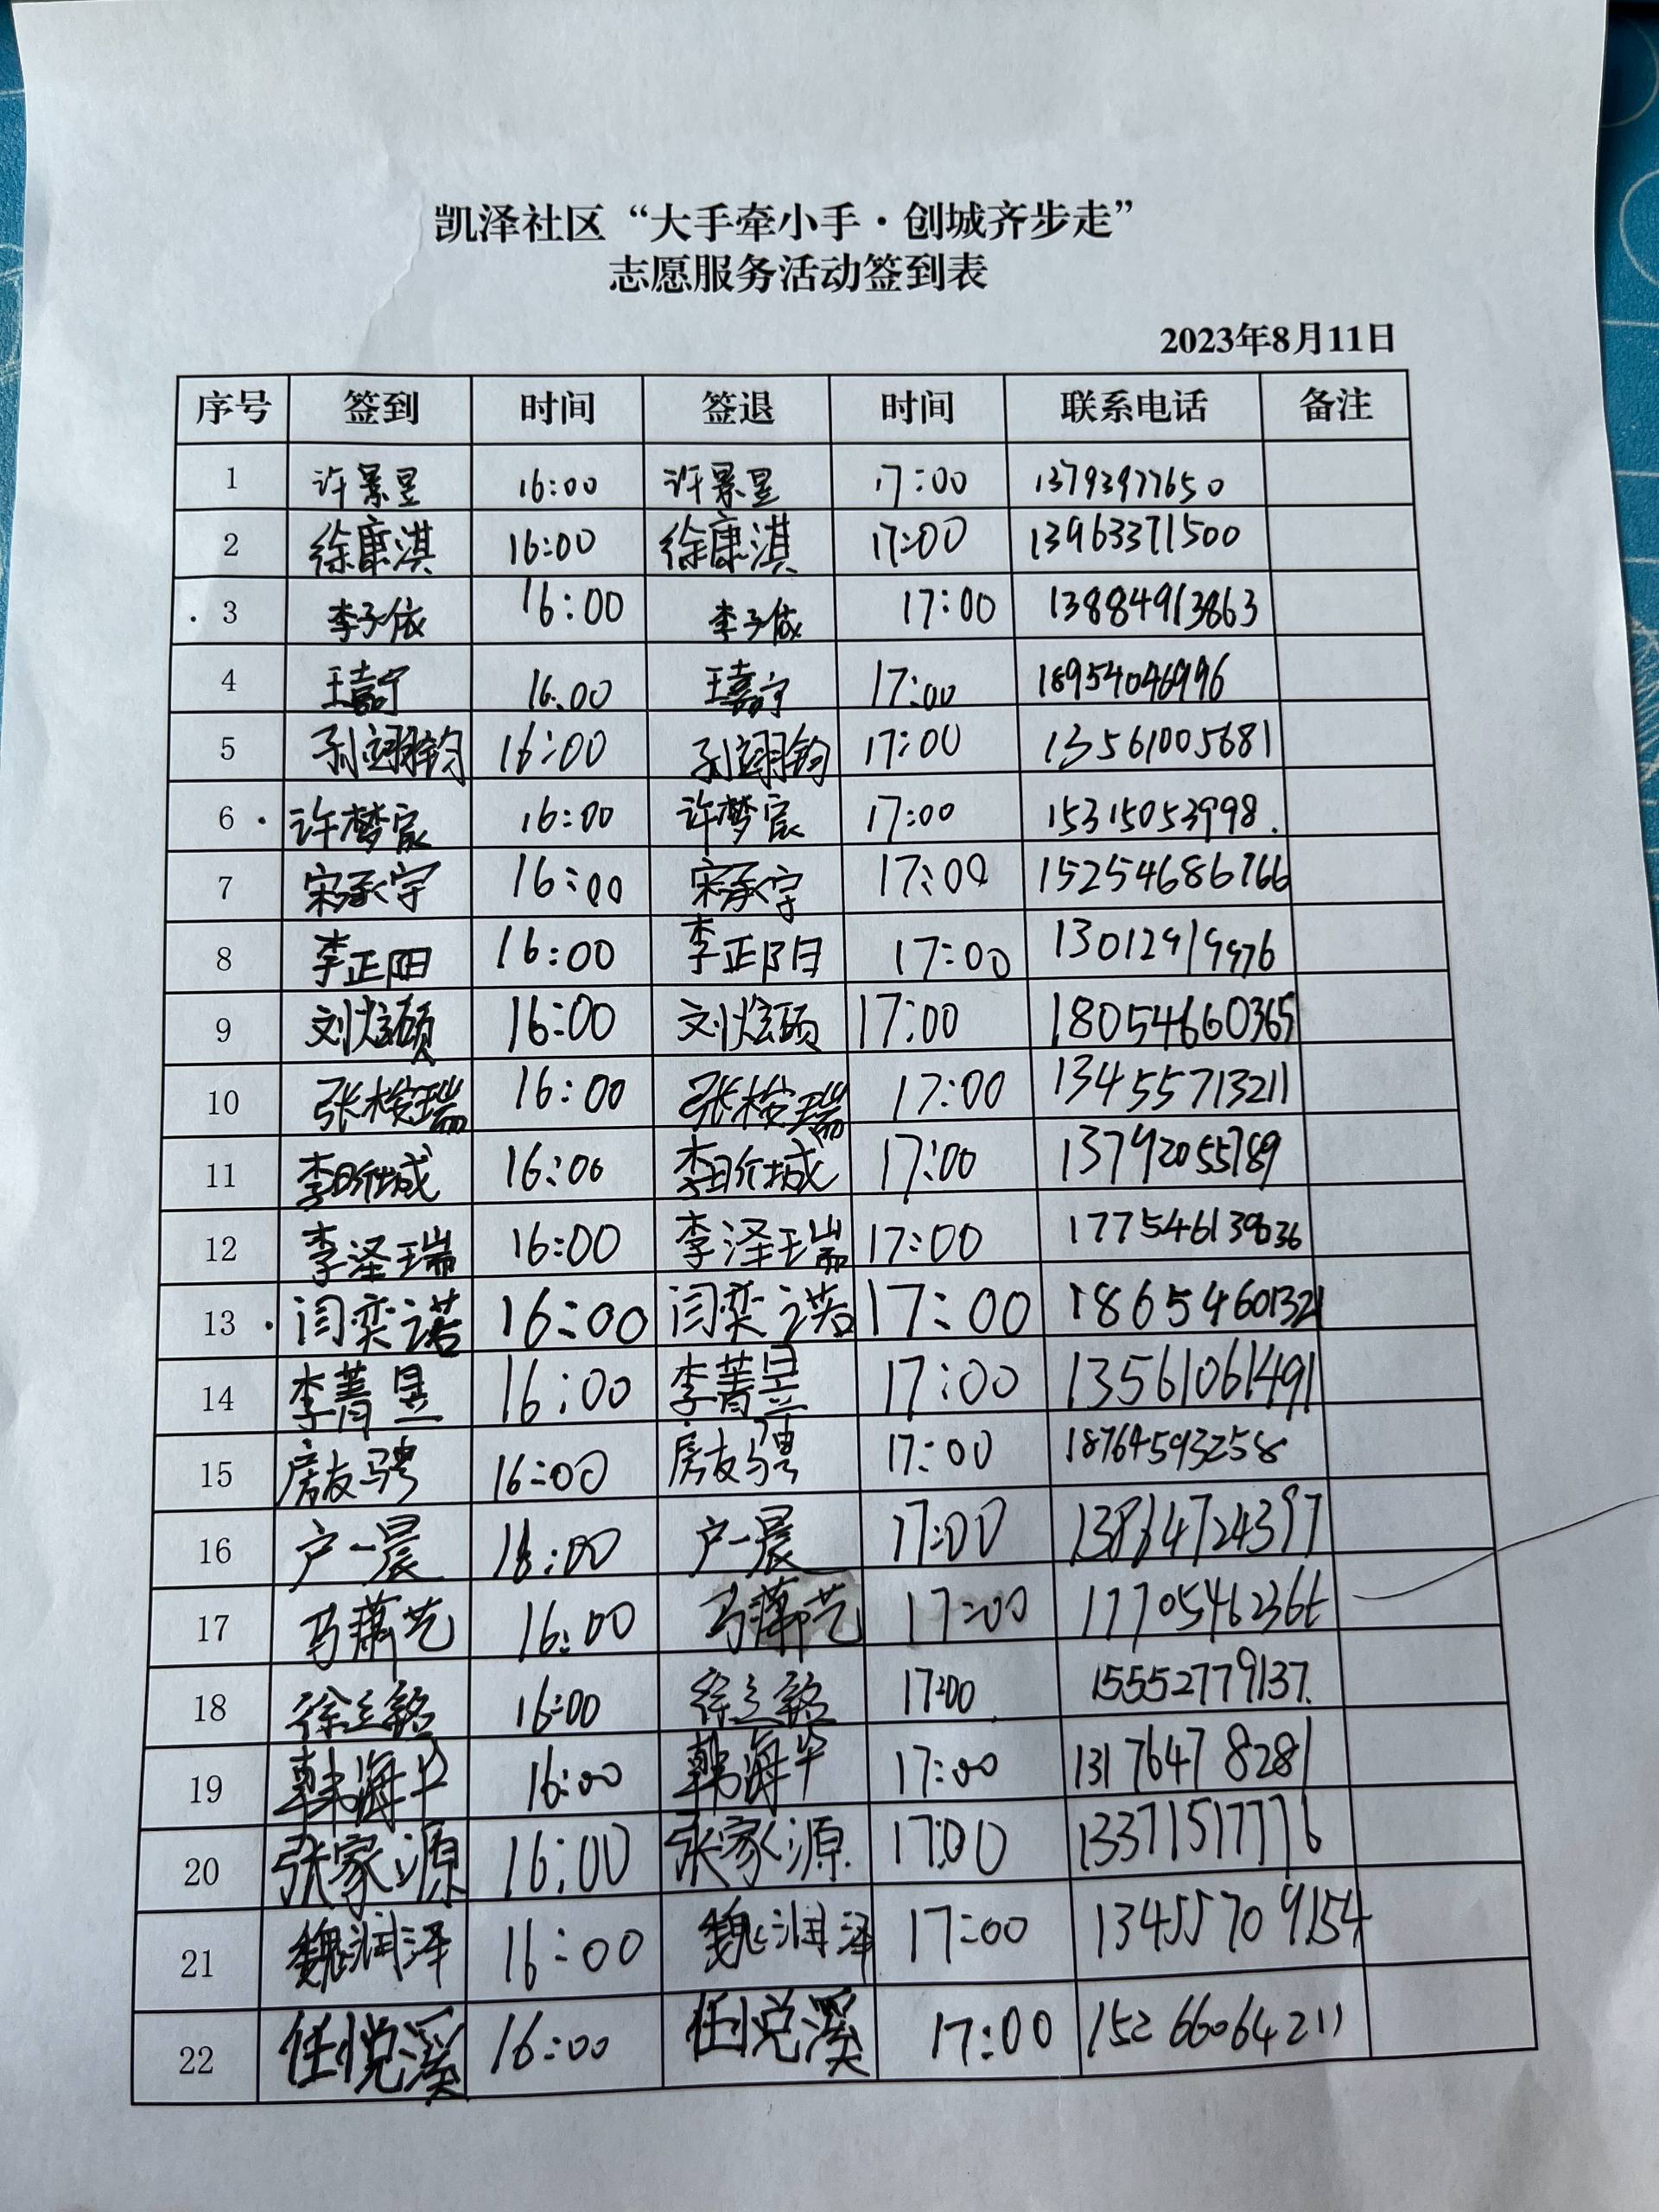 凯泽社区“大手牵小手·创城齐步走”
志愿服务活动签到表
2023年8月11日
序号 签到 时间 签退 时间 联系电话 备注
1 许景昱 16:00 许景昱 17:00 13793977650
2 徐康淇 16:00 徐康淇 17:00 13963371500
3 李子依 16:00 李子依 17:00 13884913863
4 王嘉宁 16:00 王嘉宁 17:00 18954046996
5 孙翊钧 16:00 孙翊钧 17:00 13561005681
6 许梦宸 16:00 许梦宸 17:00 15315053998
7 宋承宇 16:00 宋承宇 17:00 15254686766
8 李正阳 16:00 李正阳 17:00
9 刘炫硕 16:00 刘炫硕 17:00 18054660365
10 张桉瑞 16:00 张桉瑞 17:00 13455713211
11 16:00 17:00 13792055789
12 李泽瑞 16:00 李泽瑞 17:00
13 闫奕诺 16:00 闫奕诺 17:00 18654601321
14 李菁昱 16:00 李菁昱 17:00 13561061491
15 房友骋 16:00 房友骋 17:00 18764593258
16 户一晨 16:00 户一晨 17:00 13864724397
17 16:00 17:00 17705462366
18 徐立铭 16:00 徐立铭 17:00 15552779137
19 韩海华 16:00 韩海华 17:00 13176478281
20 张家源 16:00 张家源 17:00 13371517776
21 魏润泽 16:00 魏润泽 17:00 13455709154
22 任悦溪 16:00 任悦溪 17:00 15266064211